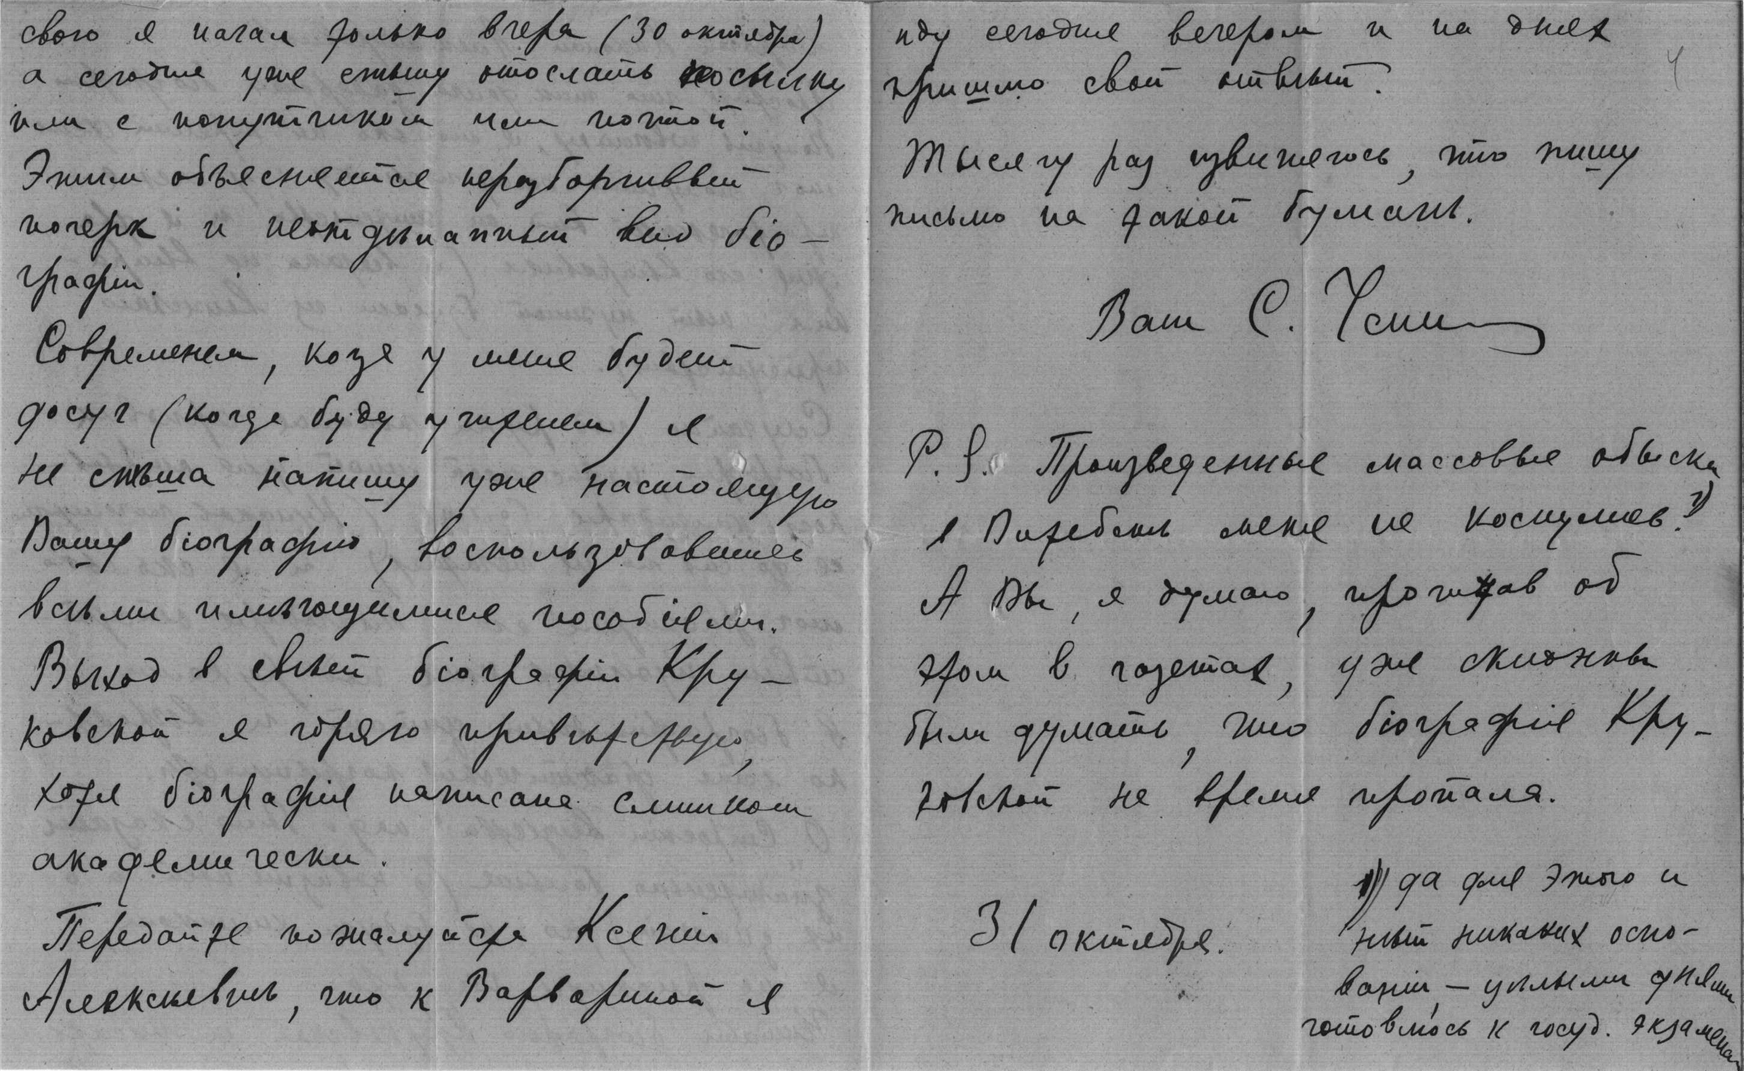 свою я начал только вчера (30 октября)
а сегодня уже спѣшу отослать посылку
или с попутчиком или почтой.
Этим объясняется неразборчивый
почерк и неотдѣланный вид біо-
графіи.
Современем, когда у меня будет
досуг (когда буду учителем) я
не спѣша напишу уже настоящую
Вашу біографію, воспользовавшись
всѣми имѣющимися пособіями.
Выход в свѣт біографіи Кру-
ковской я горячо привѣтствую,
хотя біографія написана слишком
академически.
Передайте пожалуйста Ксеніи
Алексѣевнѣ, что к Варвариной я
иду сегодня вечером и на днях
пришлю свой отвѣт.
Тысячу раз извиняюсь, что пишу
письмо на такой бумагѣ.
Ваш С.
P. S. Произведенные массовые обыски
в Витебскѣ меня не коснулись. 1)
А Вы, я думаю, прочитав об
этом в газетах, уже склонны
были думать, что біографія Кру-
ковской на время пропала.
31 октября.
1) да для этого и
нѣт никаких осно-
ваній, – цѣлыми днями
готовлюсь к госуд. экзаменам
4